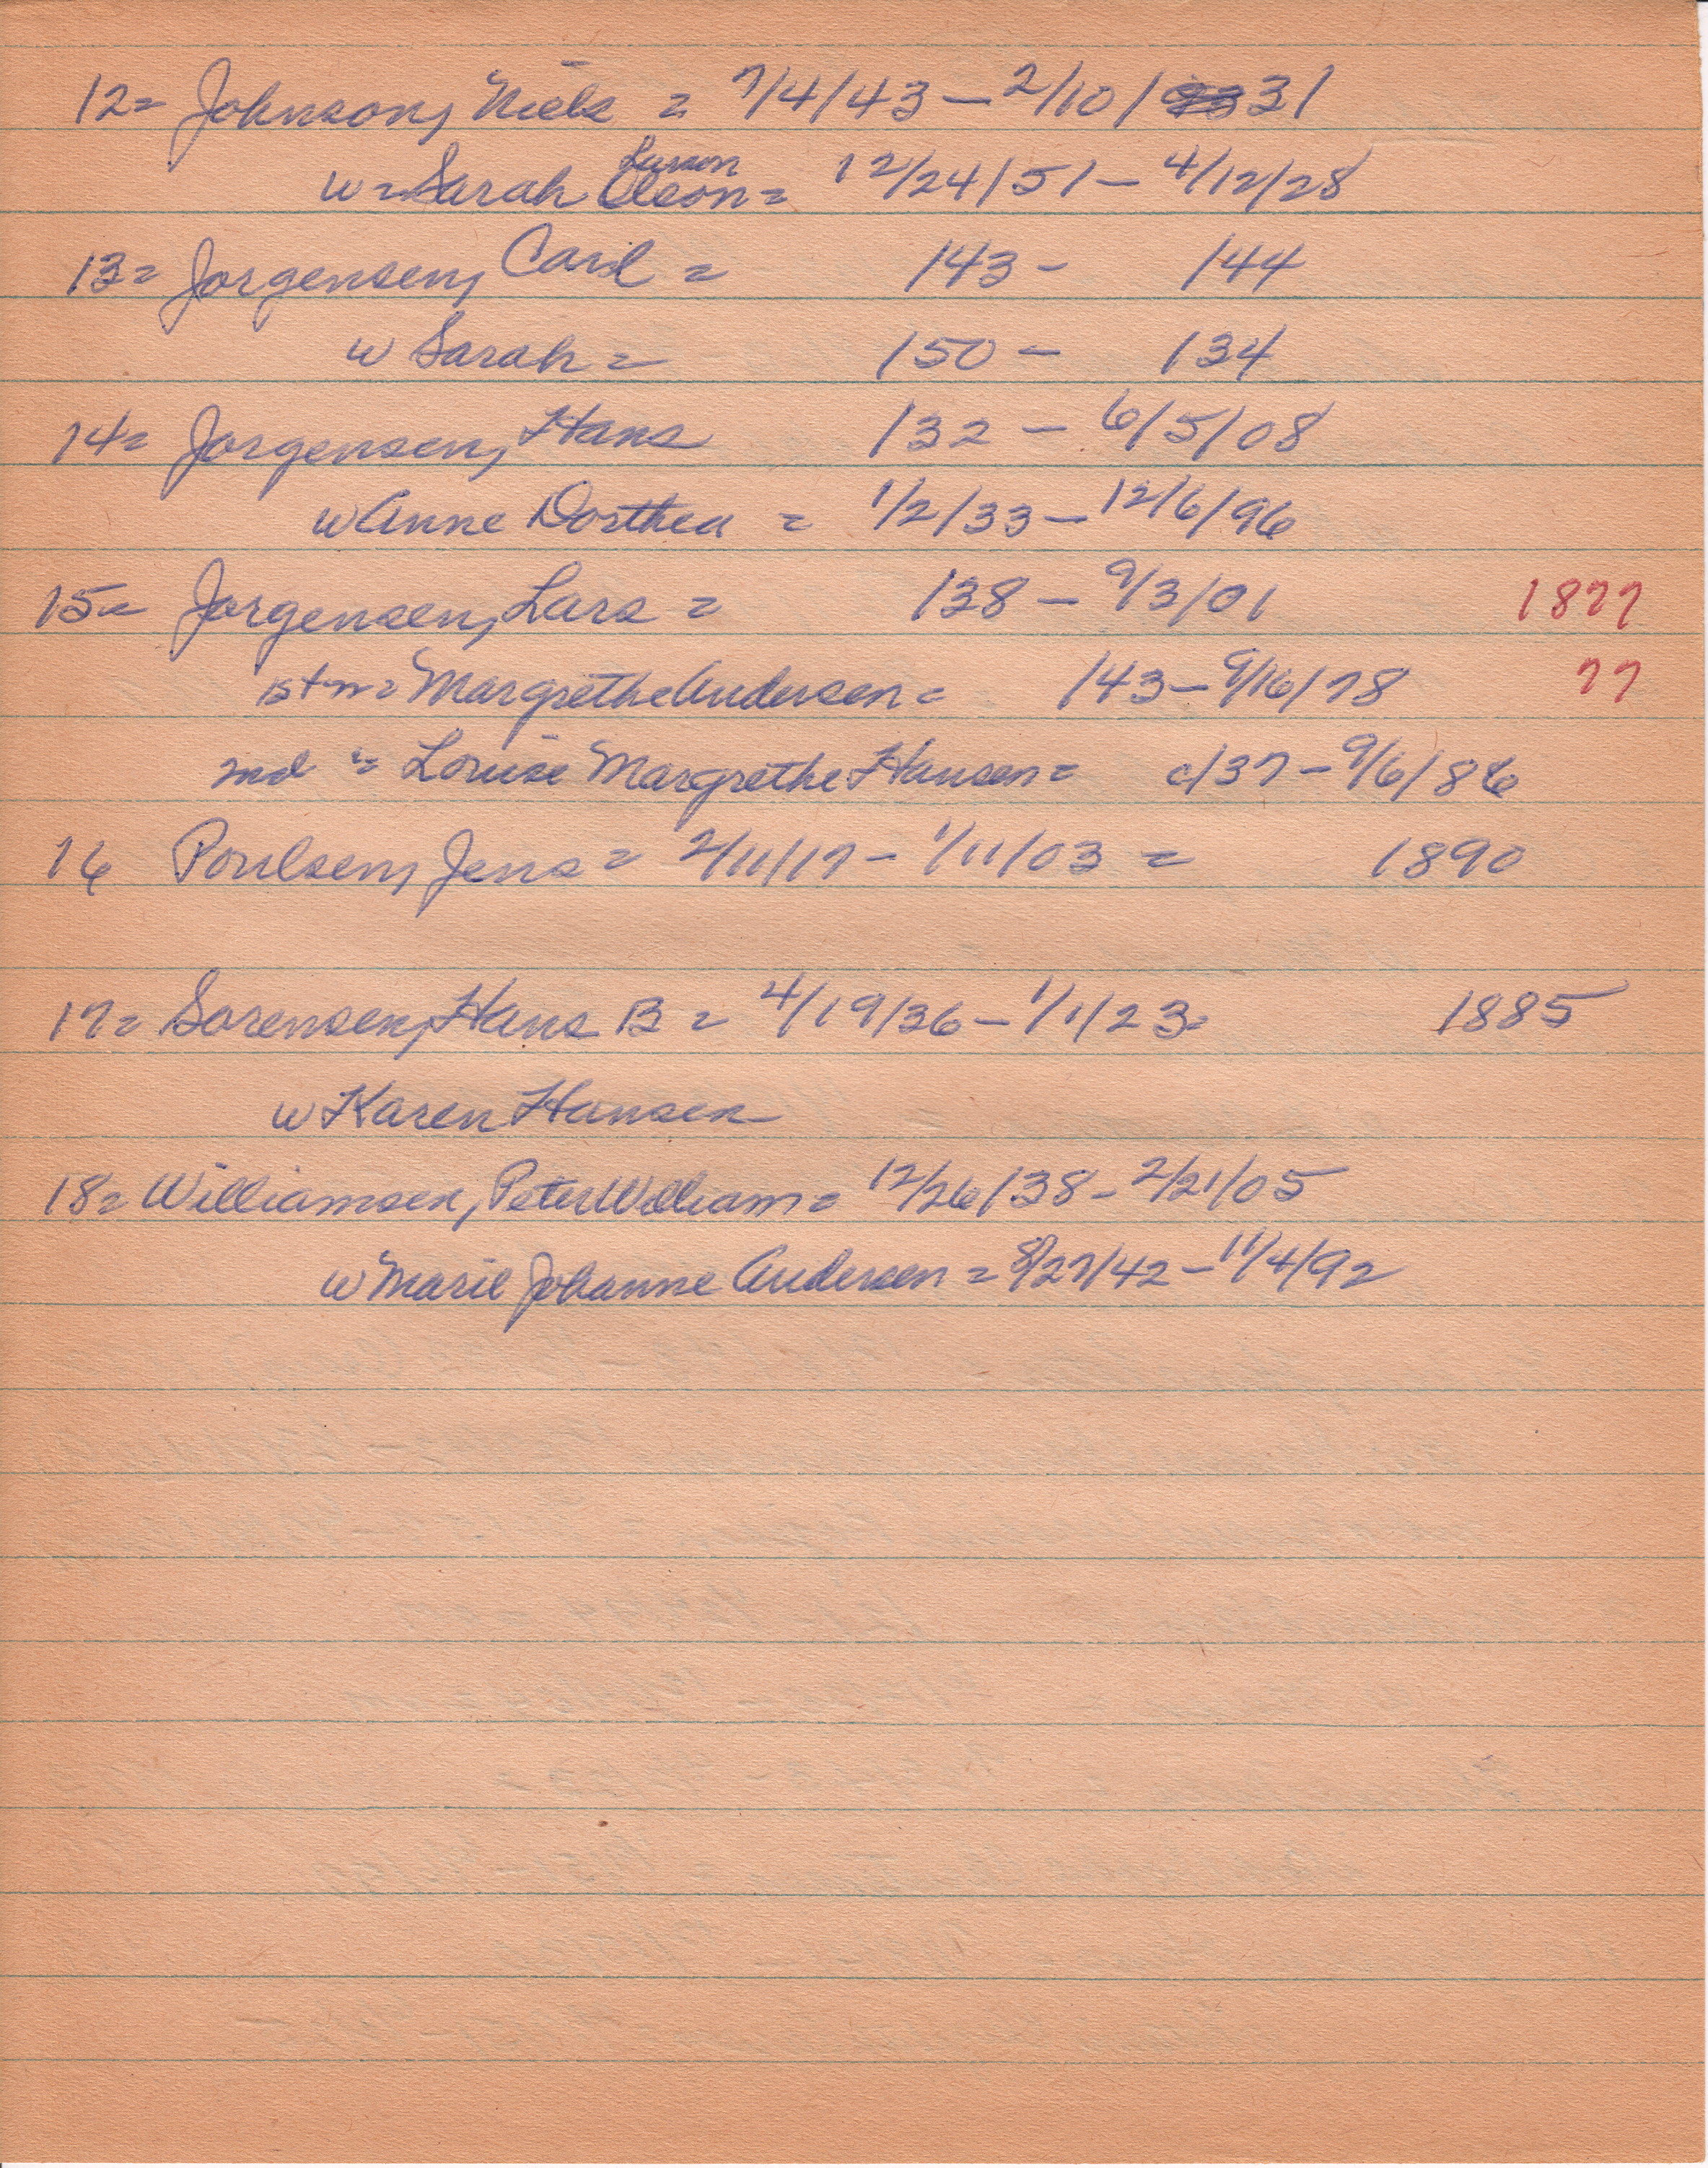 12= Johnson, Niels = 7/4/43 — 2/10/31
Larson
w = Sarah Oleson = 12/24/51 — 4/12/28
13= Jorgensen, Carl = /43 - /44
w Sarah = /50 - /34
14= Jorgensen, Hans /32 - 6/5/08
w Anne Dorthea = 1/2/33 — 12/6/96
15= Jorgensen, Lars = /38 — 9/3/01 1877
1st m = Margrethe Andersen = /43 — 9/16/78 77
2nd " = Louise Margrethe Hansen = c/37 - 9/6/86
16 Poulsen, Jens = 2/11/17 - 1/11/03 = 1890
17= Sorensen, Hans B = 4/19/36 — 1/1/23 = 1885
w Karen Hansen
18= Williamsen, Peter William = 12/26/38 - 2/21/05
w Marie Johanne Andersen = 8/27/42 - 11/4/92